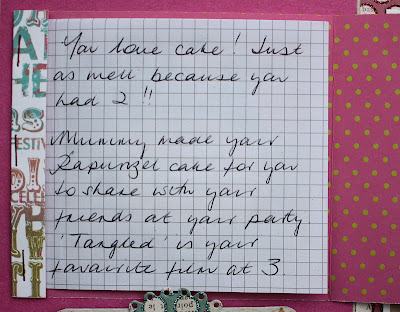 You love cake! Just
as well because you
had 2!!
Mummy made your
Rapunzel cake for you
to share with your
friends at your party.
'Tangled' is your
favourite film at 3.
FESTIV
CELE